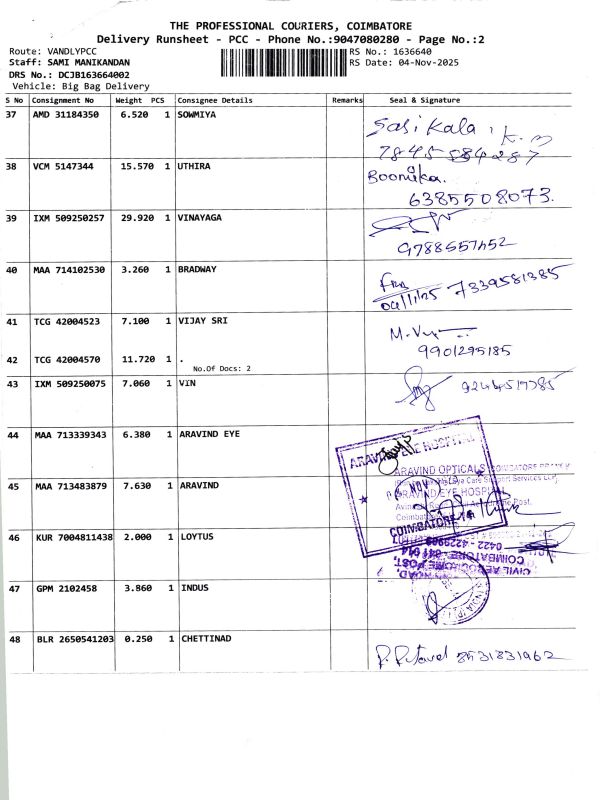 THE PROFESSIONAL COURIERS, COIMBATORE
Delivery Runsheet - PCC - Phone No.:9047080280 - Page No.:2
Route: VANDLYPCC
RS No.: 1636640
Staff: SAMI MANIKANDAN
RS Date: 04-Nov-2025
DRS No.: DCJB163664002
Vehicle: Big Bag Delivery
S No Consignment No Weight PCS Consignee Details Remarks Seal & Signature
37 AMD 31184350 6.520 1 SOWMIYA
Sasi Kala . K. m
7845584287
38 VCM 5147344 15.570 1 UTHIRA
Boomika.
6385508073.
39 IXM 509250257 29.920 1 VINAYAGA
9788557452
40 MAA 714102530 3.260 1 BRADWAY
04/11/25 7339581385
41 TCG 42004523 7.100 1 VIJAY SRI
9901295185
42 TCG 42004570 11.720 1 .
No.Of Docs: 2
43 IXM 509250075 7.060 1 VIN
44 MAA 713339343 6.380 1 ARAVIND EYE
ARAVIND EYE HOSPITAL
ARAVIND OPTICALS COIMBATORE
45 MAA 713483879 7.630 1 ARAVIND
ARAVIND EYE HOSPITAL
NOV
COIMBATORE-14
46 KUR 7004811438 2.000 1 LOYTUS
0422 -
COIMBATORE - 641 014
CIVIL AERODROME POST,
47 GPM 2102458 3.860 1 INDUS
48 BLR 2650541203 0.250 1 CHETTINAD
8531831962